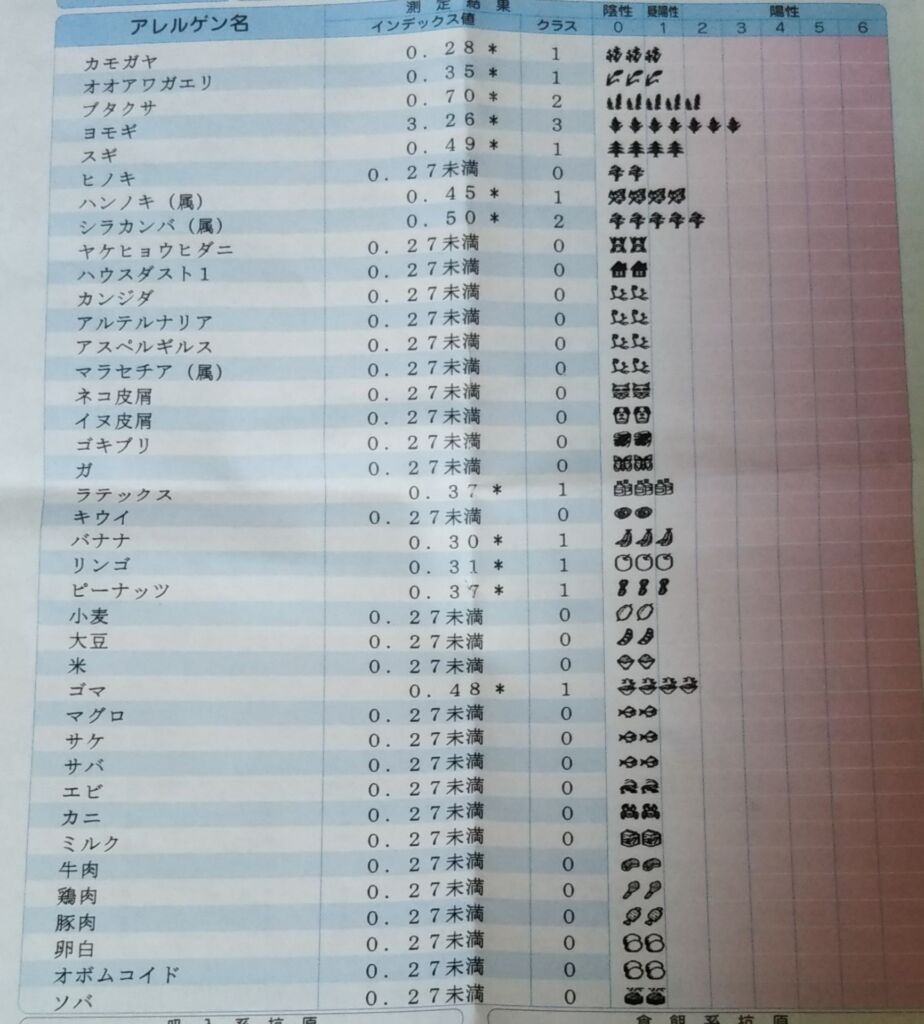 測定結果
アレルゲン名 インデックス値 クラス 陰性 疑陽性 陽性
0 1 2 3 4 5 6
カモガヤ 0.28* 1
オオアワガエリ 0.35* 1
ブタクサ 0.70* 2
ヨモギ 3.26* 3
スギ 0.49* 1
ヒノキ 0.27未満 0
ハンノキ(属) 0.45* 1
シラカンバ(属) 0.50* 2
ヤケヒョウヒダニ 0.27未満 0
ハウスダスト1 0.27未満 0
カンジダ 0.27未満 0
アルテルナリア 0.27未満 0
アスペルギルス 0.27未満 0
マラセチア(属) 0.27未満 0
ネコ皮屑 0.27未満 0
イヌ皮屑 0.27未満 0
ゴキブリ 0.27未満 0
ガ 0.27未満 0
ラテックス 0.37* 1
キウイ 0.27未満 0
バナナ 0.30* 1
リンゴ 0.31* 1
ピーナッツ 0.37* 1
小麦 0.27未満 0
大豆 0.27未満 0
米 0.27未満 0
ゴマ 0.48* 1
マグロ 0.27未満 0
サケ 0.27未満 0
サバ 0.27未満 0
エビ 0.27未満 0
カニ 0.27未満 0
ミルク 0.27未満 0
牛肉 0.27未満 0
鶏肉 0.27未満 0
豚肉 0.27未満 0
卵白 0.27未満 0
オボムコイド 0.27未満 0
ソバ 0.27未満 0
吸入系抗原 食餌系抗原